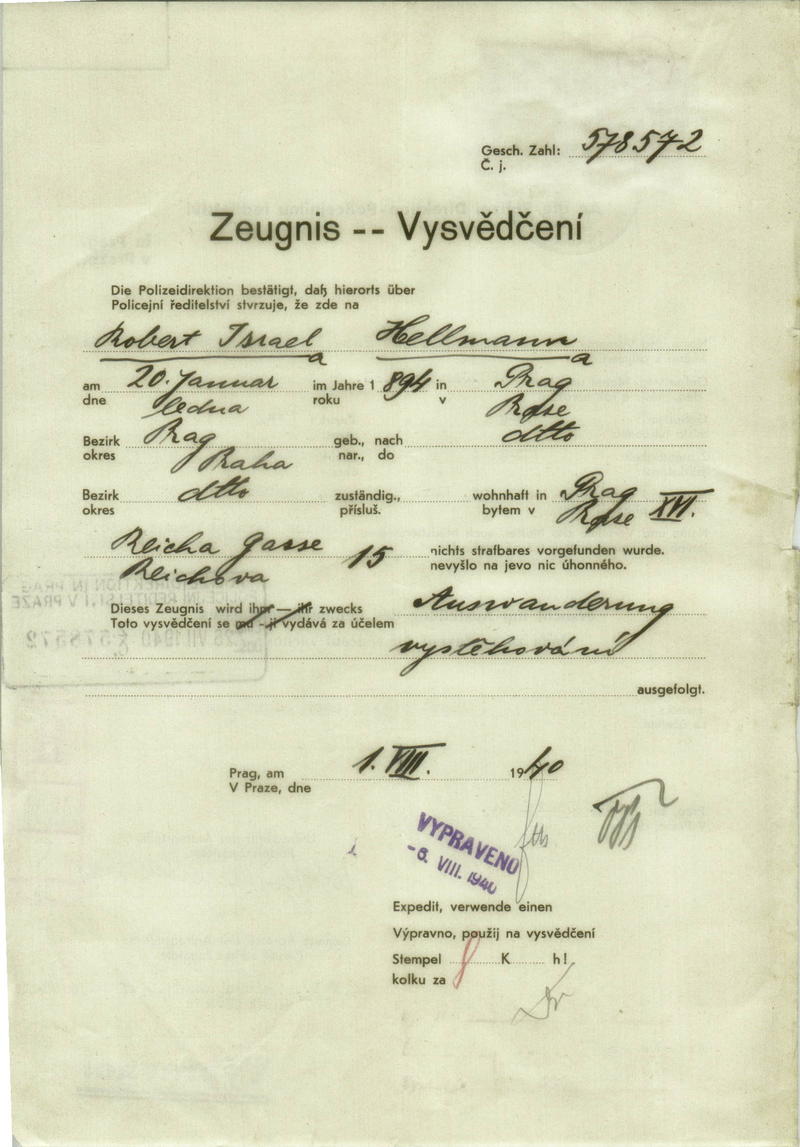 Gesch. Zahl: 578572
Č. j.
Zeugnis -- Vysvědčení
Die Polizeidirektion bestätigt, daß hierorts über
Policejní ředitelství stvrzuje, že zde na
Robert Israel Hellmann
a a
am 20. Januar im Jahre 1 894 in Prag
dne ledna roku v Praze
Bezirk Prag geb., nach dtto
okres Praha nar., do
Bezirk dtto zuständig., wohnhaft in Prag XVI.
okres přísluš. bytem v Praze
Reicha Gasse 15 nichts strafbares vorgefunden wurde.
Reichova nevyšlo na jevo nic úhonného.
Dieses Zeugnis wird ihm — ihr zwecks Auswanderung
Toto vysvědčení se mu - jí vydává za účelem
vystěhování
ausgefolgt.
Prag, am 1. VIII. 1940
V Praze, dne
VYPRAVENO
-6. VIII. 1940
Expedit, verwende einen
Výpravno, použij na vysvědčení
Stempel 8 K h!
kolku za